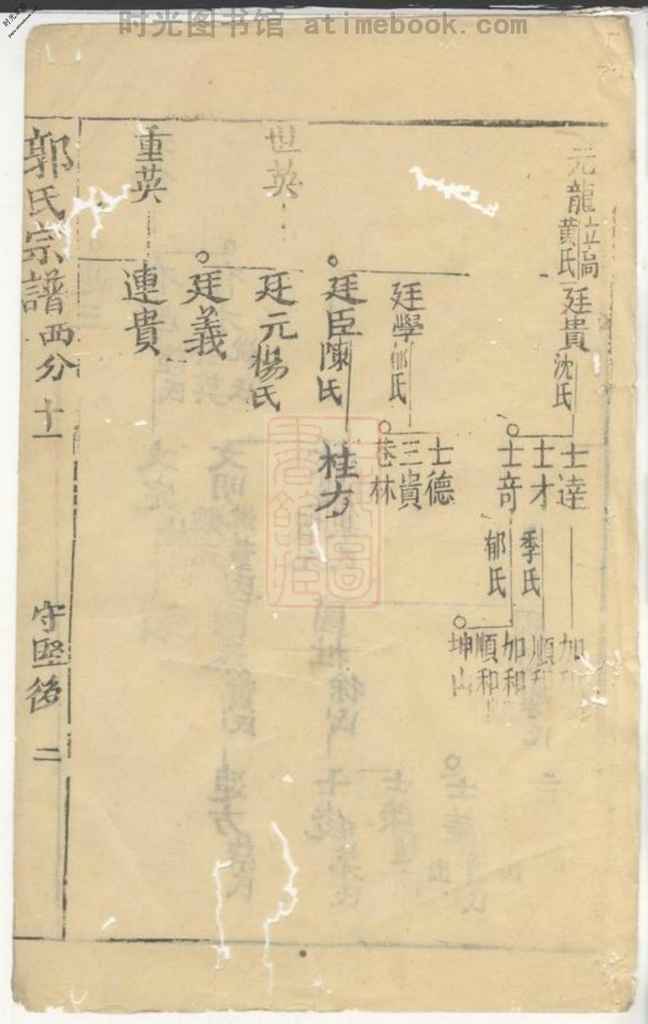 时光图书馆 atimebook.com
元龍
黄氏
廷貴
沈氏
士達
士才
季氏
士奇
郁氏
加和
順和
坤山
廷學
郁氏
士德
三貴
林
世英
廷臣
陳氏
桂方
廷元
楊氏
廷義
重英
連貴
郭氏宗譜
西分
十一
守堅後
二